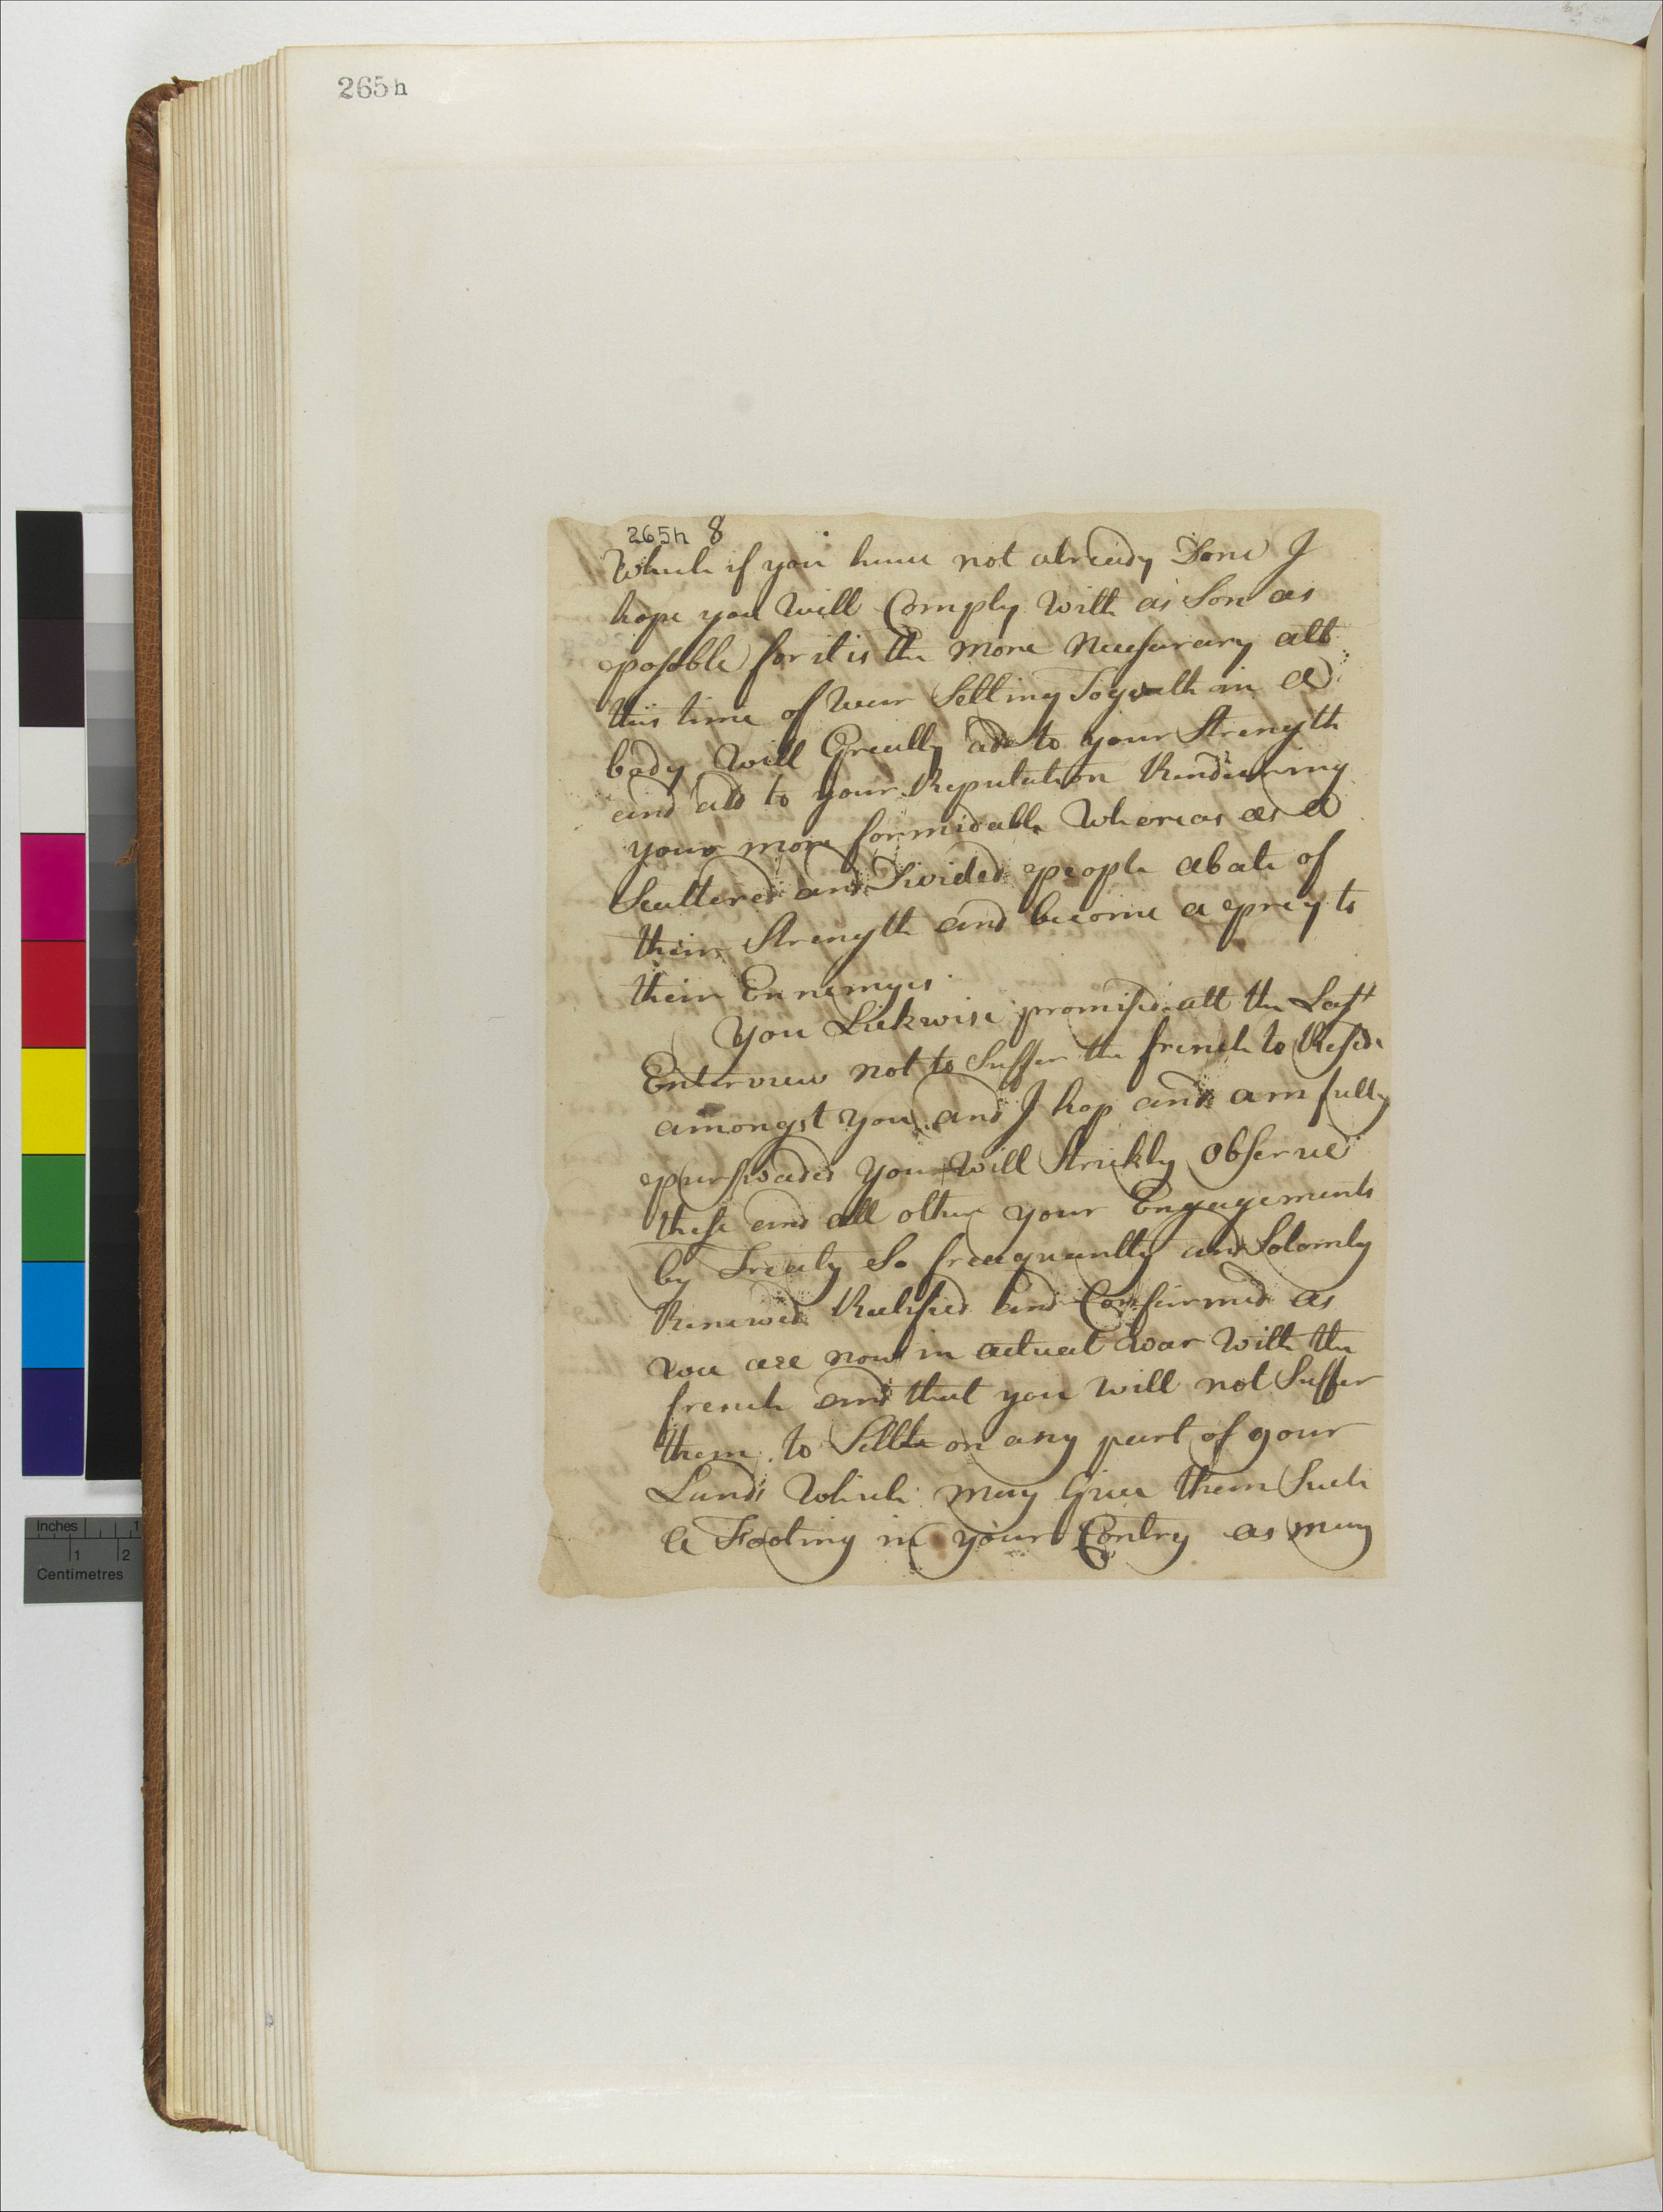 265h
265h 8
Which if you haue not already Done I
hope you Will Comply With as Son as
possble for it is the more Necessarary att
this time of War Setling Togeath in a
body Will Greatly ade to your Strength
and ad to your Reputation Rendering
your more formidable Whereas as a
Scattered and Divided people abate of
their Strength and become a prey to
their Ennemyes
You Liekwise promised att the Last
Enterview not to Suffer the french to Reside
amongst You and I hop and am fully
purswaded You Will Strickly Observe
these and all other your Engagements
by Treaty So freaquantly and Solomly
Renewed Ratified and Confurmed as
wee are now in actual War With the
french and that you will not Suffer
them to Settle on any part of your
Lands Which may Give them Such
a Footing in your Contry as may
Inches 1
1 2
Centimetres